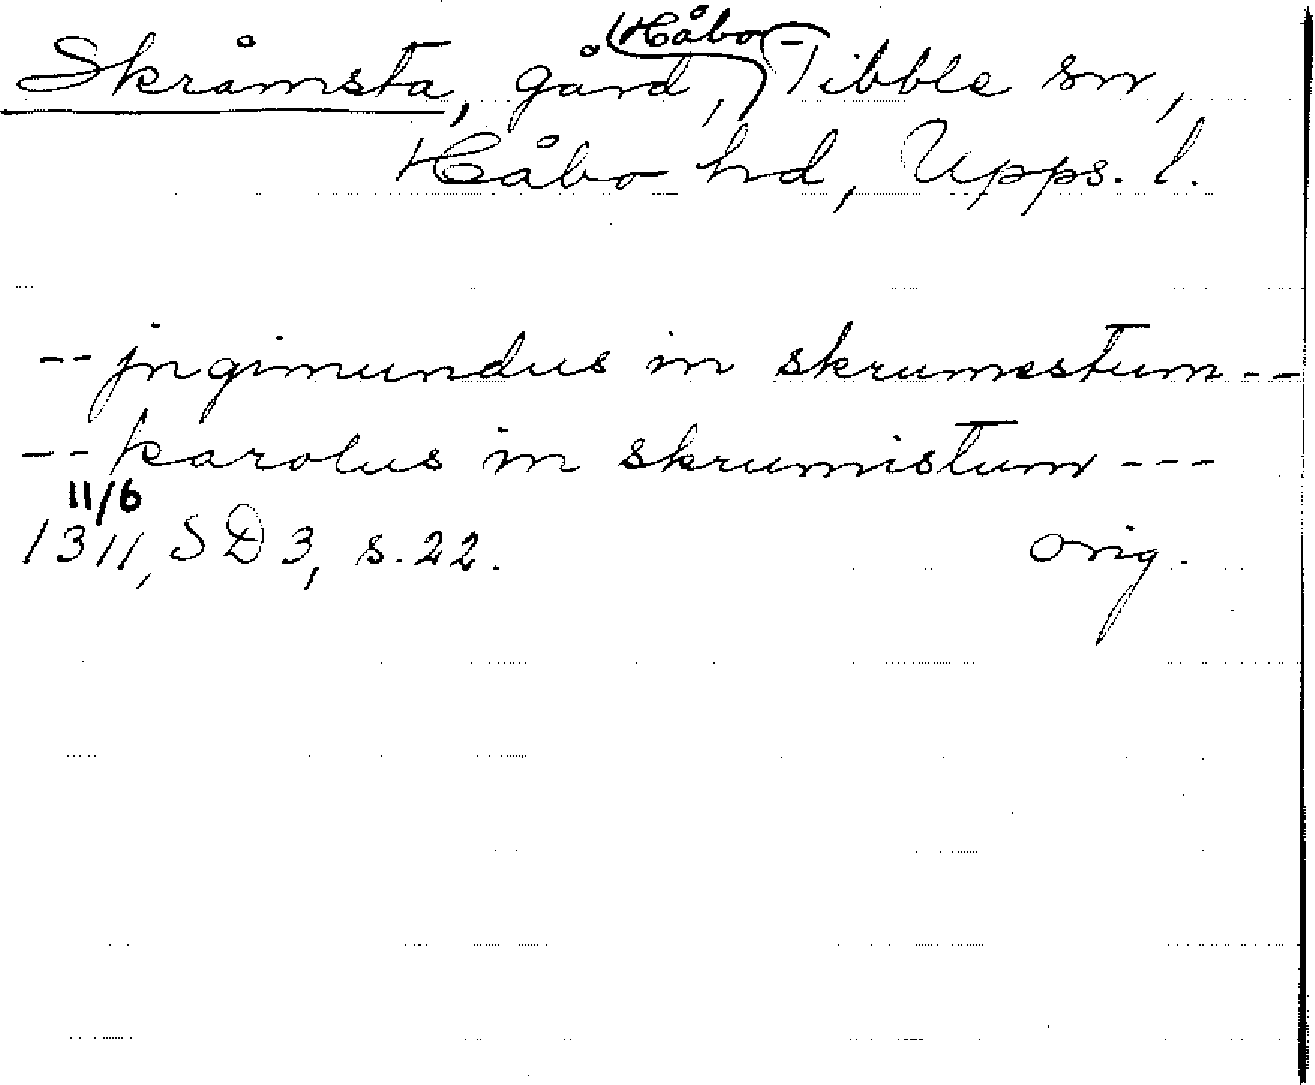 Skråmsta, gård, Håbo-Tibble sn,
Håbo hd, Upps. l.
-- jngimundus in skrumstum --
-- karolus in skrumistum ---
11/6
1311, SD 3, s. 22. orig.